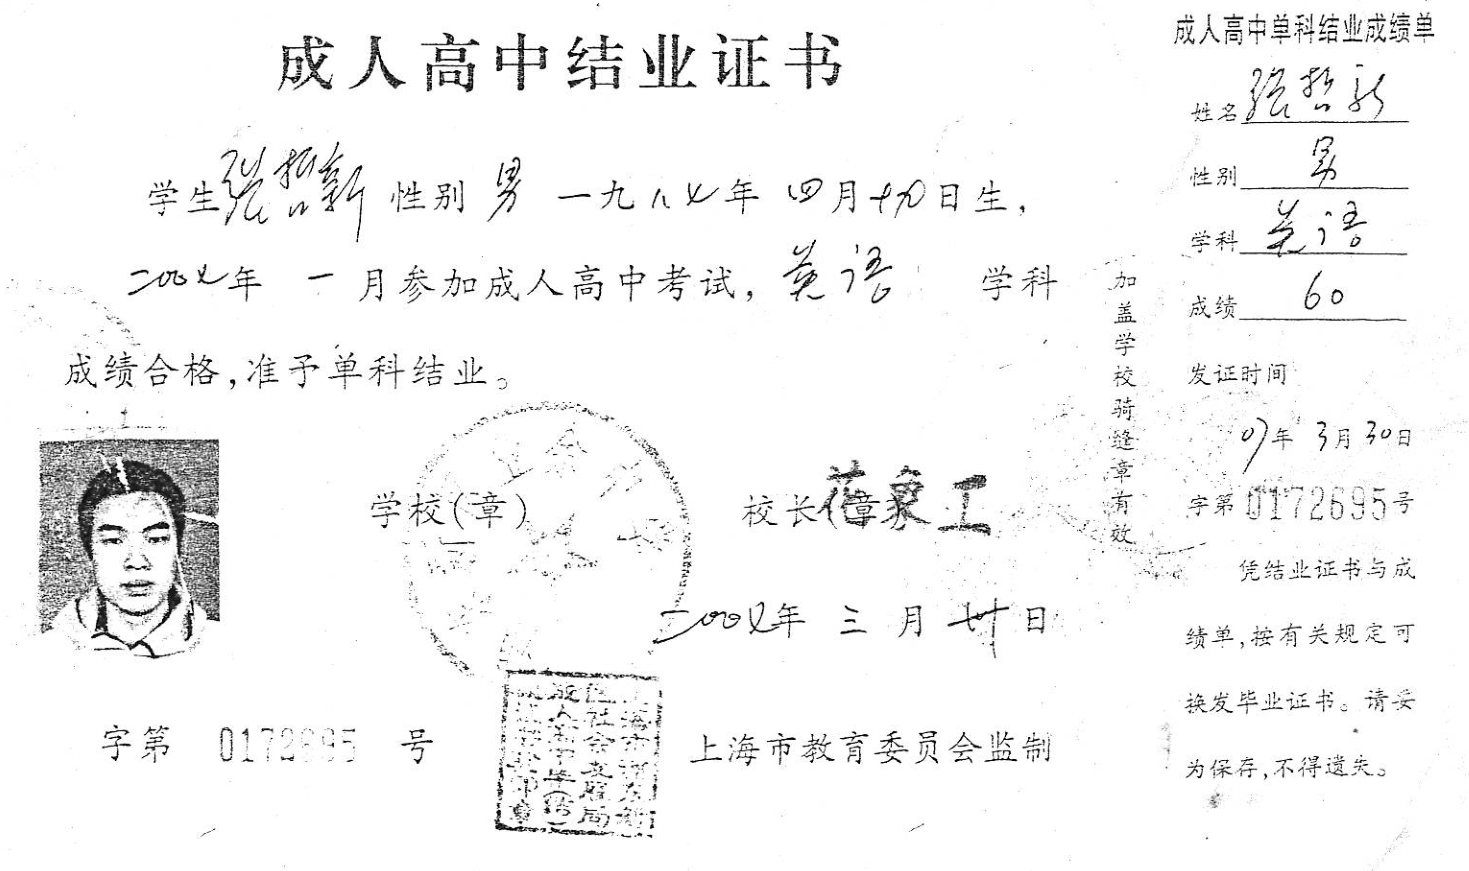 成人高中结业证书
学生张哲新 性别 男 一九八七年 四月十九日生，
二〇〇七年 一月参加成人高中考试，英语 学科
成绩合格，准予单科结业。
学校(章)
校长(章)
二〇〇七年 三月 卅日
字第 0172695 号
上海市教育委员会监制
加盖学校骑缝章有效
成人高中单科结业成绩单
姓名 张哲新
性别 男
学科 英语
成绩 60
发证时间
07年 3月30日
字第0172695号
凭结业证书与成
绩单，按有关规定可
换发毕业证书。请妥
为保存，不得遗失。